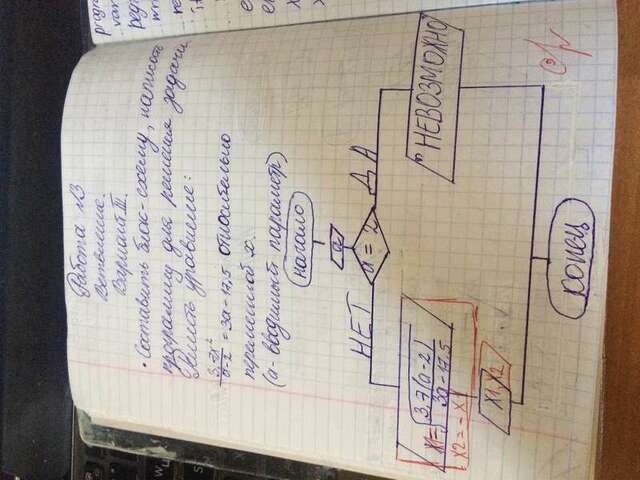 Работа №3
Ветвление
Вариант III.
• Составить блок-схему, написать
программу для решения задачи
Решить уравнение:
3,7x²/a-2 = 3a-17,5 относительно
переменной x.
(a-вводимый параметр)
начало
a
a = 2
НЕТ
ДА
x1=√3,7(a-2)/3a-17,5
x2=-x1
НЕВОЗМОЖНО
x1,x2
конец